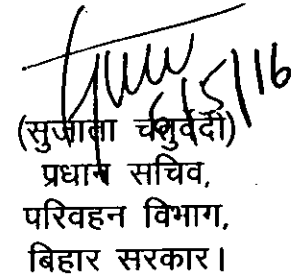 6/5/16
(सुजाता चतुर्वेदी)
प्रधान सचिव,
परिवहन विभाग,
बिहार सरकार।